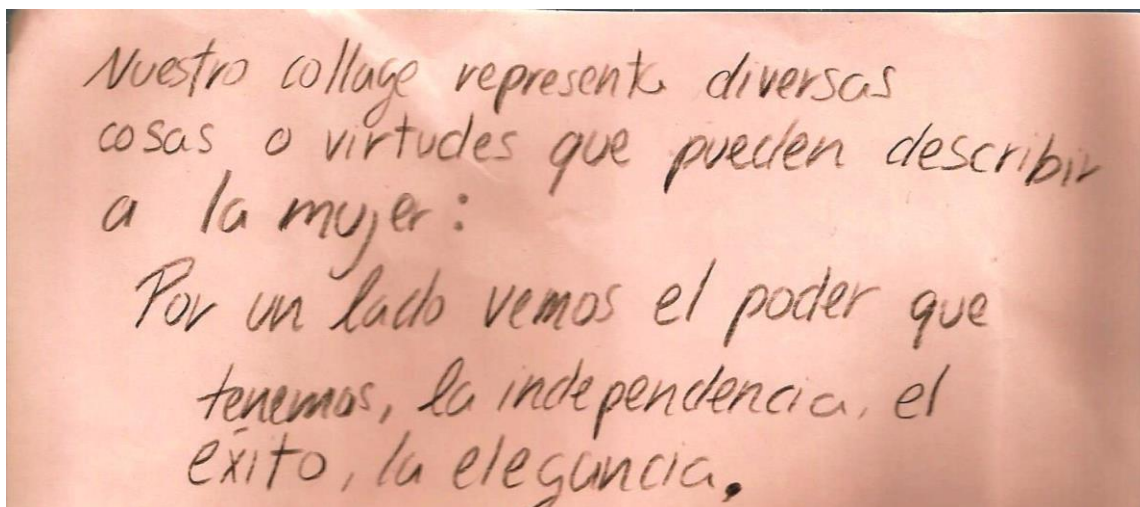 Nuestro collage representa diversas
cosas o virtudes que pueden describir
a la mujer:
Por un lado vemos el poder que
tenemos, la independencia, el
éxito, la elegancia.